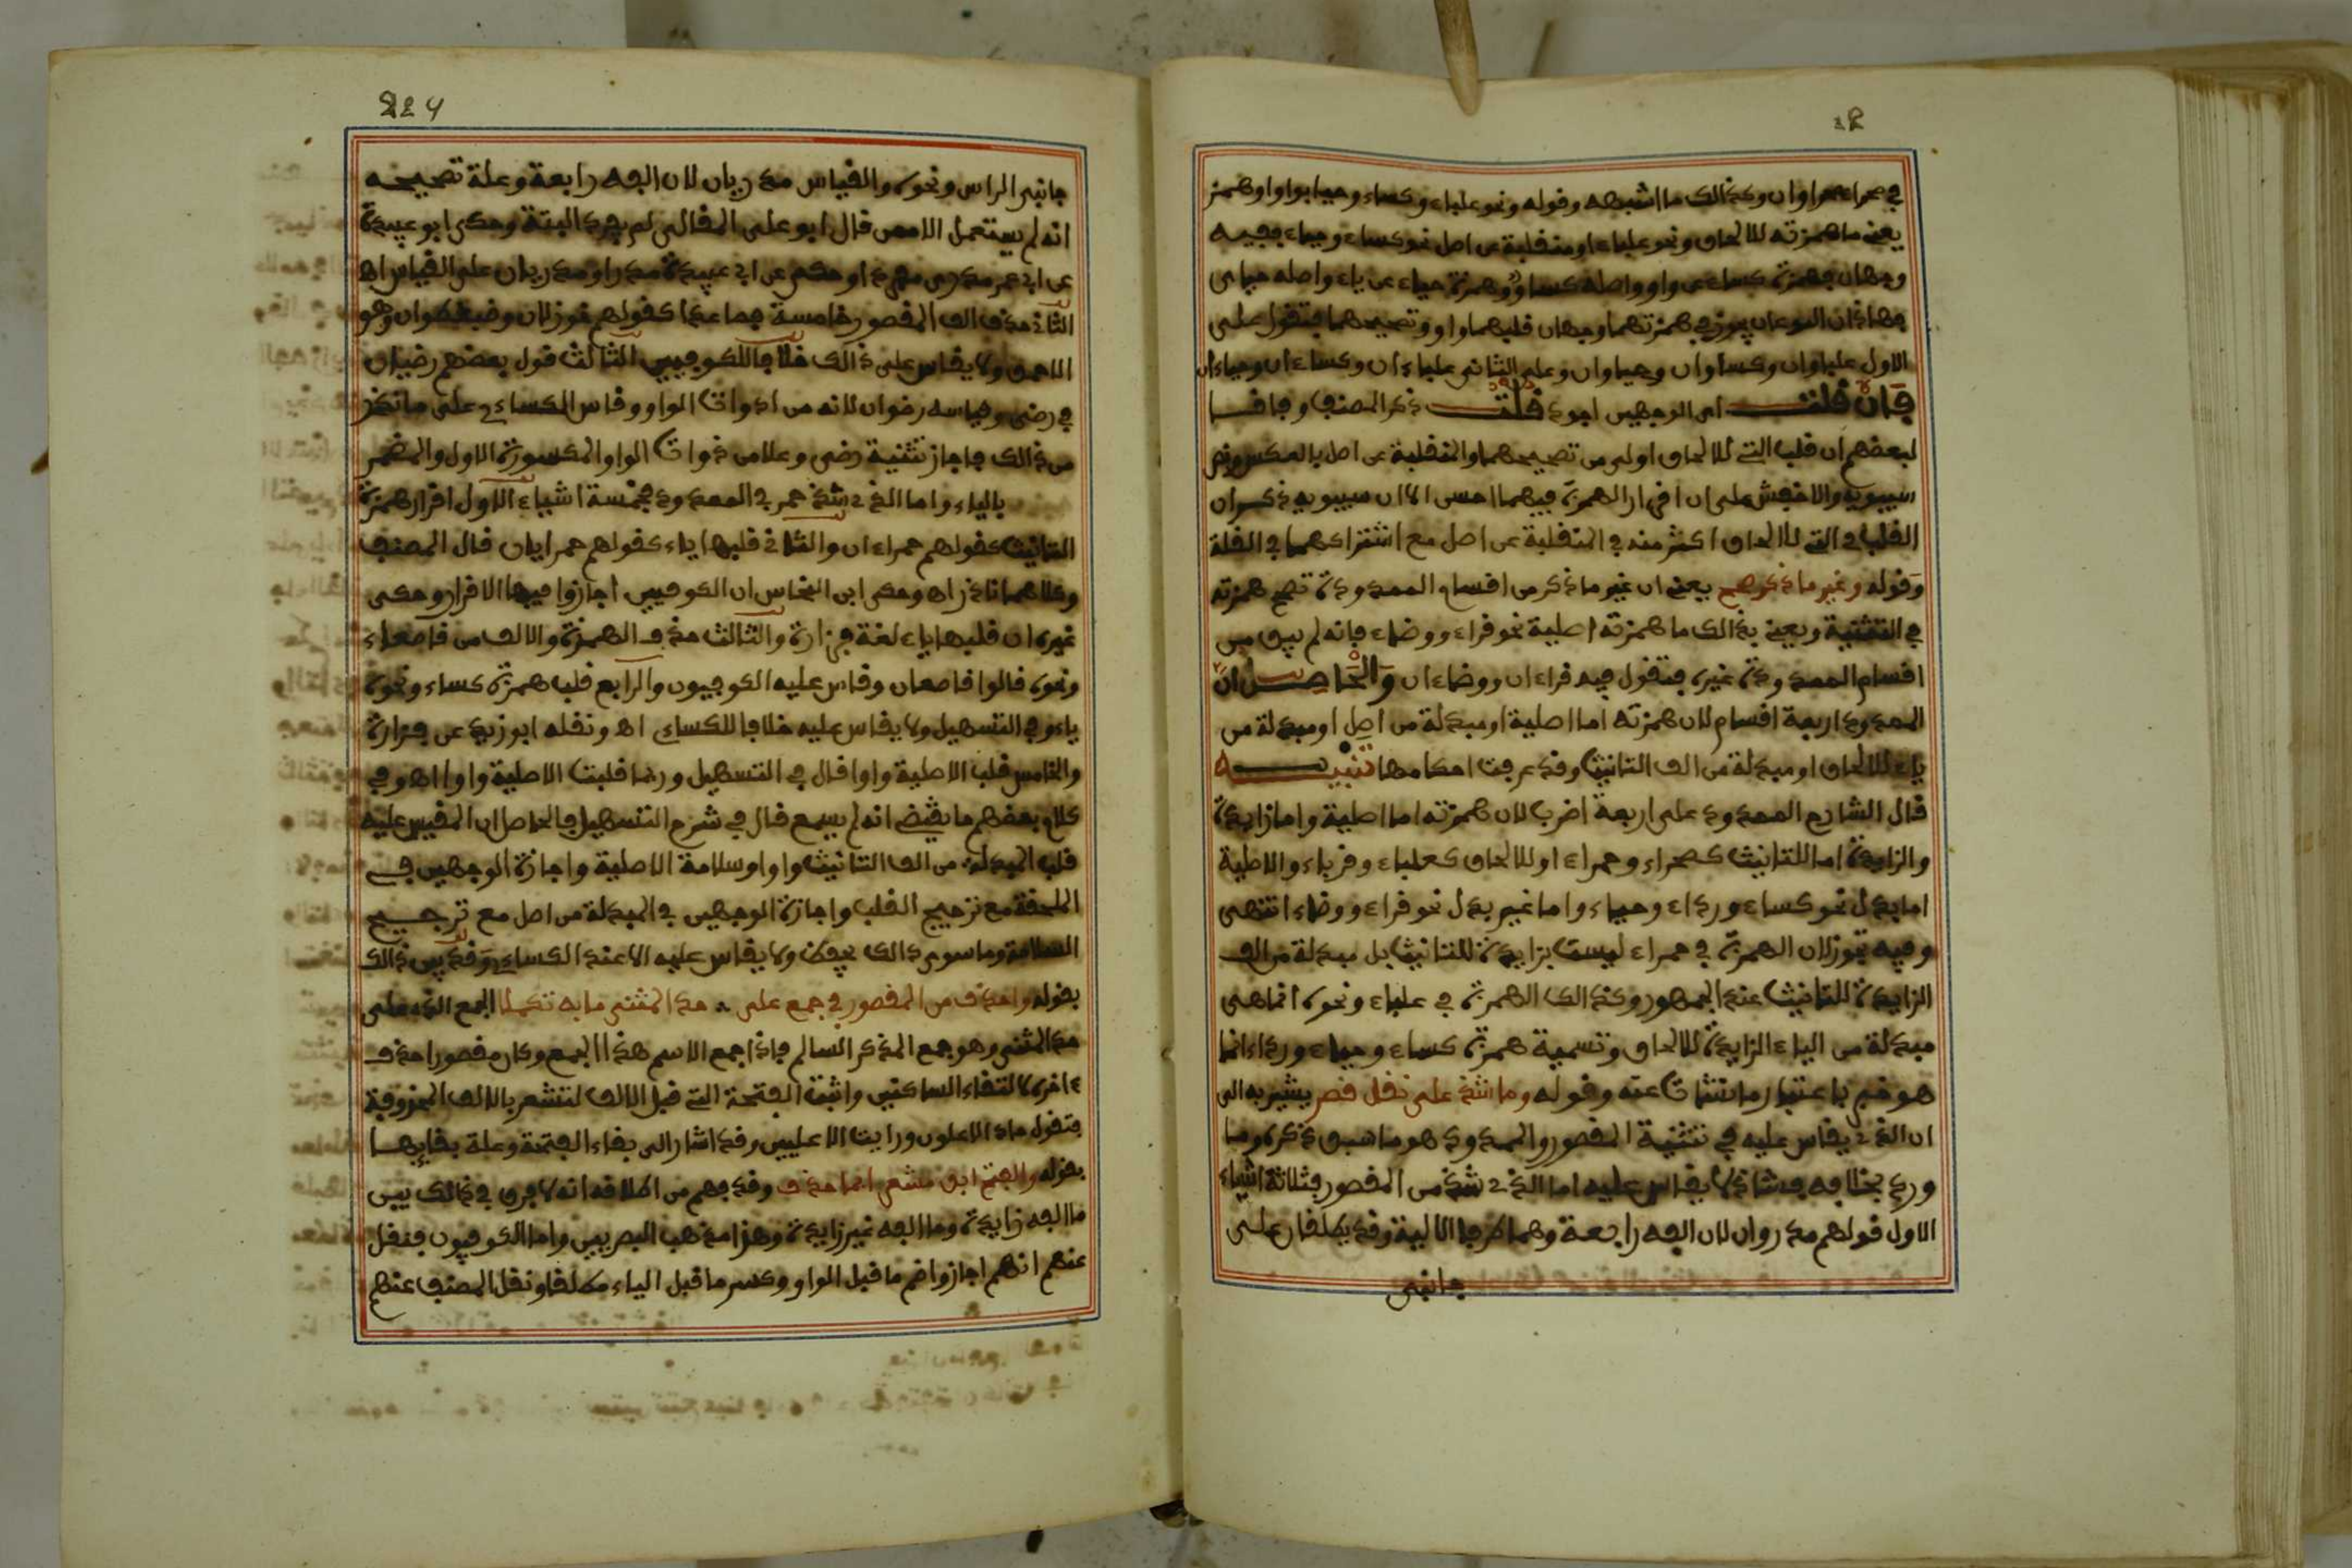 في صحراء صحراوان وكذالك ما اشبهه وقوله ونحو علباء وكساء وحيا بواو او همز
يعني ما همزته للالحاق ونحو علباء او منقلبة عن اصل نحو كساء وحياء ففيه
وجهان فهمزة كساء عن واو واصله كساو وهمزة حياء عن ياء واصله حياي
فهاذان النوعان يجوز في همزتهما وجهان قلبهما واوا وتصحيحهما فتقول على
الاول علباوان وكساوان وحياوان وعلى الثاني علباءان وكساءان وحياءان
فان قلت اي الوجهين اجود قلت ذكر المصنف وفاقا
لبعضهم ان قلب التي للالحاق اولى من تصحيحهما والمنقلبة عن اصل بالعكس ونص
سيبويه والاخفش على ان اقرار الهمزة فيهما احسن الا ان سيبويه ذكر ان
القلب في التي للالحاق اكثر منه في المنقلبة عن اصل مع اشتراكهما في القلة
وقوله وغير ما ذكر صحح يعني ان غير ما ذكر من اقسام الممدودة تصح همزته
في التثنية ويعني بذالك ما همزته اصلية نحو قراء ووضاء فانه لم يبق من
اقسام الممدودة غيره فتقول فيه قراءان ووضاءان والحاصل ان
الممدود اربعة اقسام لان همزته اما اصلية او مبدلة من اصل او مبدلة من
ياء للالحاق او مبدلة من الف التانيث وقد عرفت احكامها تنبيه
قال الشارح الممدود على اربعة اضرب لان همزته اما اصلية واما زايدة
والزايدة اما للتانيث كصحراء وحمراء او للالحاق كعلباء وقوباء والاصلية
اما بدل نحو كساء ورداء وحياء واما غير بدل نحو قراء ووضاء انتهى
وفيه تجوز لان الهمزة في حمراء ليست بزايدة للتانيث بل مبدلة من الف
الزايدة للتانيث عند الجمهور وكذالك الهمزة في علباء ونحوه انما هي
مبدلة من الياء الزايدة للالحاق وتسمية همزة كساء وحياء ورداء انما
هو باعتبار ما نشات عنه وقوله وما شذ على نقل قصر يشير به الى
ان الذي يقاس عليه في تثنية المقصور والممدود هو ما سبق ذكره وما
ورد بخلافه فشاذ لا يقاس عليه اما الذي شذ من المقصور فثلاثة اشياء
الاول قولهم مذروان لان الفه رابعة وهما طرفا الالية وقد يطلقان على
جانبي
جانبي الراس ونحوه والقياس مذريان لان الفه رابعة وعلة تصحيحه
انه لم يستعمل الا قال ابو علي القالي لم يفرد البتة وحكى ابو عبيدة
عن ابي عمر مذرى مفردا وحكي عن ابي عبيدة مذرا ومذريان على القياس اه
الثاني حذف الف المقصور خامسة فصاعدا كقولهم خوزلان وضبغطران وهو
ولا يقاس على ذالك خلافا للكوفيين الثالث قول بعضهم رضيان
في رضى وقياسه رضوان لانه من ذوات الواو وقاس الكساءي على ما
من ذالك فاجاز تثنية رضى وعلا من ذوات الواو المكسورة الاول والمضمر
بالياء واما الذي شذ في الممدود فخمسة اشياء الاول اقرار همزة
التانيث كقولهم حمراءان والثاني قلبها ياء كقولهم حمرايان قال المصنف
وكلاهما نادر اه وحكى ابن النحاس ان الكوفيين اجازوا فيها الاقرار وحكى
غيره ان قلبها ياء لغة فزارة والثالث حذف الهمزة والالف من قاصعاء
ونحوه قالوا قاصعان وقاس عليه الكوفيون والرابع قلب همزة كساء ونحوه
ياء وفي التسهيل ولا يقاس عليه خلافا للكساءي اه ونقله ابو زيد عن فزارة
والخامس قلب الاصلية واوا قال في التسهيل وربما قلبت الاصلية واوا اه وفي
كلام بعضهم ما يقتضي انه لم يسمع قال في شرح التسهيل فالحاصل ان المقيس عليه
قلب المبدلة من الف التانيث واوا وسلامة الاصلية واجازة الوجهين في
الملحقة مع ترجيح القلب واجازة الوجهين في المبدلة من اصل مع ترجيح
السلامة وما سوى ذالك يحفظ ولا يقاس عليه الا عند الكساءي وقد بين ذالك
بقوله واحذف من المقصور في جمع على حد المثنى ما به تكملا الجمع الذي على
حد المثنى وهو جمع المذكر السالم فاذا جمع الاسم هذا الجمع وكان مقصورا حذف
ءاخره لالتقاء الساكنين واثبت الفتحة التي قبل الالف لتشعر بالالف المحذوفة
فتقول جاء الاعلون ورايت الاعلين وقد اشار الى بقاء الفتحة وعلة بقايها
بقوله والفتح ابق مشعرا بما حذف وقد فهم من اطلاقه انه لا فرق في ذالك بين
ما الفه زايدة وما الفه غير زايدة وهذا مذهب البصريين واما الكوفيون فنقل
عنهم انهم اجازوا ضم ما قبل الواو وكسر ما قبل الياء مطلقا ونقل المصنف عنهم